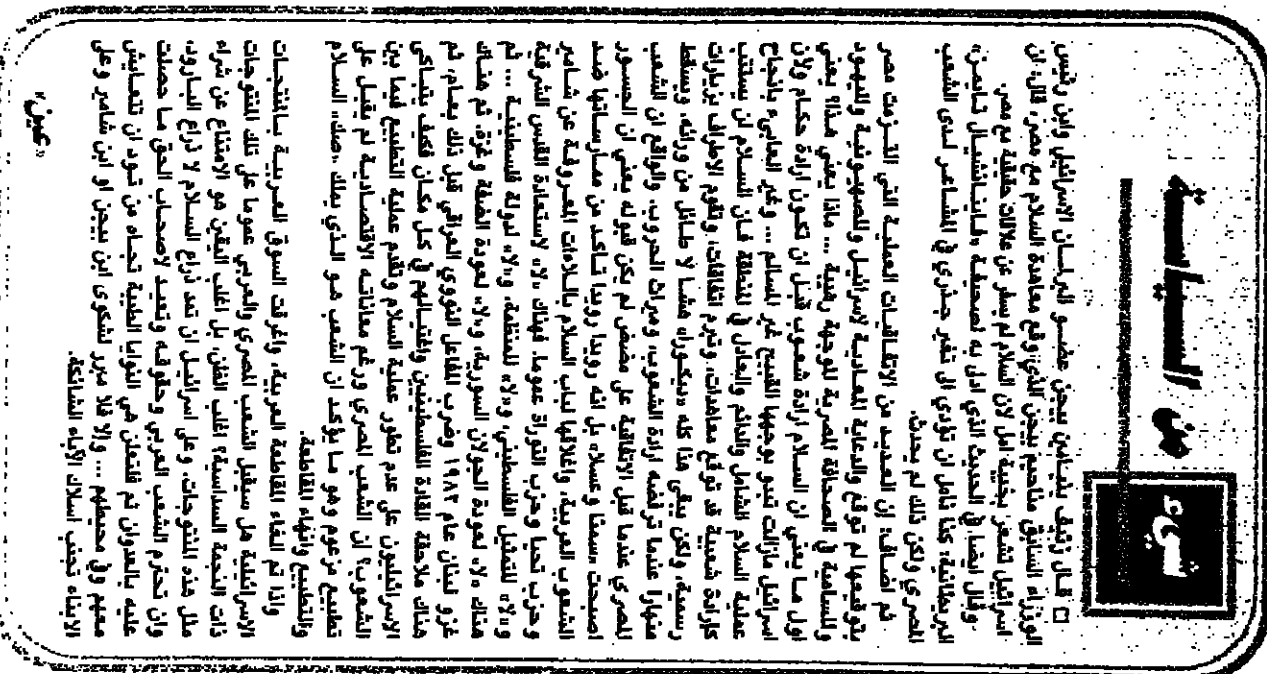 شيء
من السياسة
□ قال زئيف بنيامين بيجن عضو البرلمان الاسرائيلي وابن رئيس
الوزراء السابق مناحيم بيجن الذي وقع معاهدة السلام مع مصر، قال: ان
اسرائيل تشعر بخيبة امل لان السلام لم يسفر عن علاقات حقيقية مع مصر.
وقال ايضا في الحديث الذي ادلى به لصحيفة «فاينانشيال تايمز»
البريطانية: كنا نامل ان تؤدي الى تغير جذري في المشاعر لدى الشعب
المصري ولكن ذلك لم يحدث.
ثم اضاف: ان العديد من الاتفاقيات العملية التي التزمت مصر
بتوقيعها لم توقع والدعاية المعادية لاسرائيل وللصهيونية ولليهود
وللسامية في الصحافة المصرية للوجهة رهيبة ... ماذا يعني هذا؟ يعني
اول ما يعني ان السلام ارادة شعوب قبل ان تكون ارادة حكام ولان
اسرائيل مازالت تبدو بوجهها القبيح غير المسالم ... وغير العابىء بانجاح
عملية السلام الشامل والدائم والعادل في المنطقة فان السلام لن يستتب
كارادة شعبية قد توقع معاهدات، وتبرم اتفاقات، وتقوم الاطراف بزيارات
رسمية، ولكن يبقى هذا كله «ديكورا» هشا لا طائل من ورائه، ويسقط
منهارا عندما ترفضه ارادة الشعوب، وميراث الحروب. والواقع ان الشعب
المصري عندما قبل الاتفاقية على مضض لم يكن قبوله يعني ان الجسور
اصبحت «سمنا وعسلا» بل انه رويدا رويدا تاكد من ممارساتها ضد
الشعوب العربية، واغلاقها لباب السلام باللاءات المعروفة عن شامير
وحزب تحيا وحزب التوراة عموما. فهناك «لا» لاستعادة القدس الشرقية
و«لا» للتمثيل الفلسطيني، و«لا» للمنظمة، و«لا» لدولة فلسطينية ... ثم
هناك «لا» لعودة الجولان السورية، و«لا» لعودة الضفة وغزة. ثم هناك
غزو لبنان عام ١٩٨٢ وضرب المفاعل النووي العراقي قبل ذلك بعام. ثم
هناك ملاحقة القادة الفلسطينيين واغتيالهم في كل مكان فكيف يتباكى
الاسرائيليون على عدم تطور عملية السلام وتقدم عملية التطبيع فيما بين
الشعوب؟ ان الشعب المصري ورغم معاناته الاقتصادية لم يقبل على
تطبيع مزعوم وهو ما يؤكد ان الشعب هو الذي يملك «صك» السلام
والتطبيع وانهاء المقاطعة.
واذا تم الغاء المقاطعة العربية، واغرقت السوق العربية بالمنتجات
الاسرائيلية هل سيقبل الشعب المصري والعربي عموما على تلك المنتوجات
ذات النجمة السداسية؟ اغلب الظن، بل اغلب اليقين هو الامتناع عن شراء
مثل هذه المنتوجات. وعلى اسرائيل ان تمد ذراع السلام لا ذراع البارود،
وان تحترم الشعب العربي وحقوقه وتعيد لاصحاب الحق ما حصلت
عليه بالعدوان ثم فلتعلن هي النوايا الطيبة تجاه من تود ان تتعايش
معهم وفي محيطهم ... والا فلا مبرر لشكوى ابن بيجن او ابن شامير وعلى
الابناء تجنب اسلاك الآباء الشائكة.
«عين»